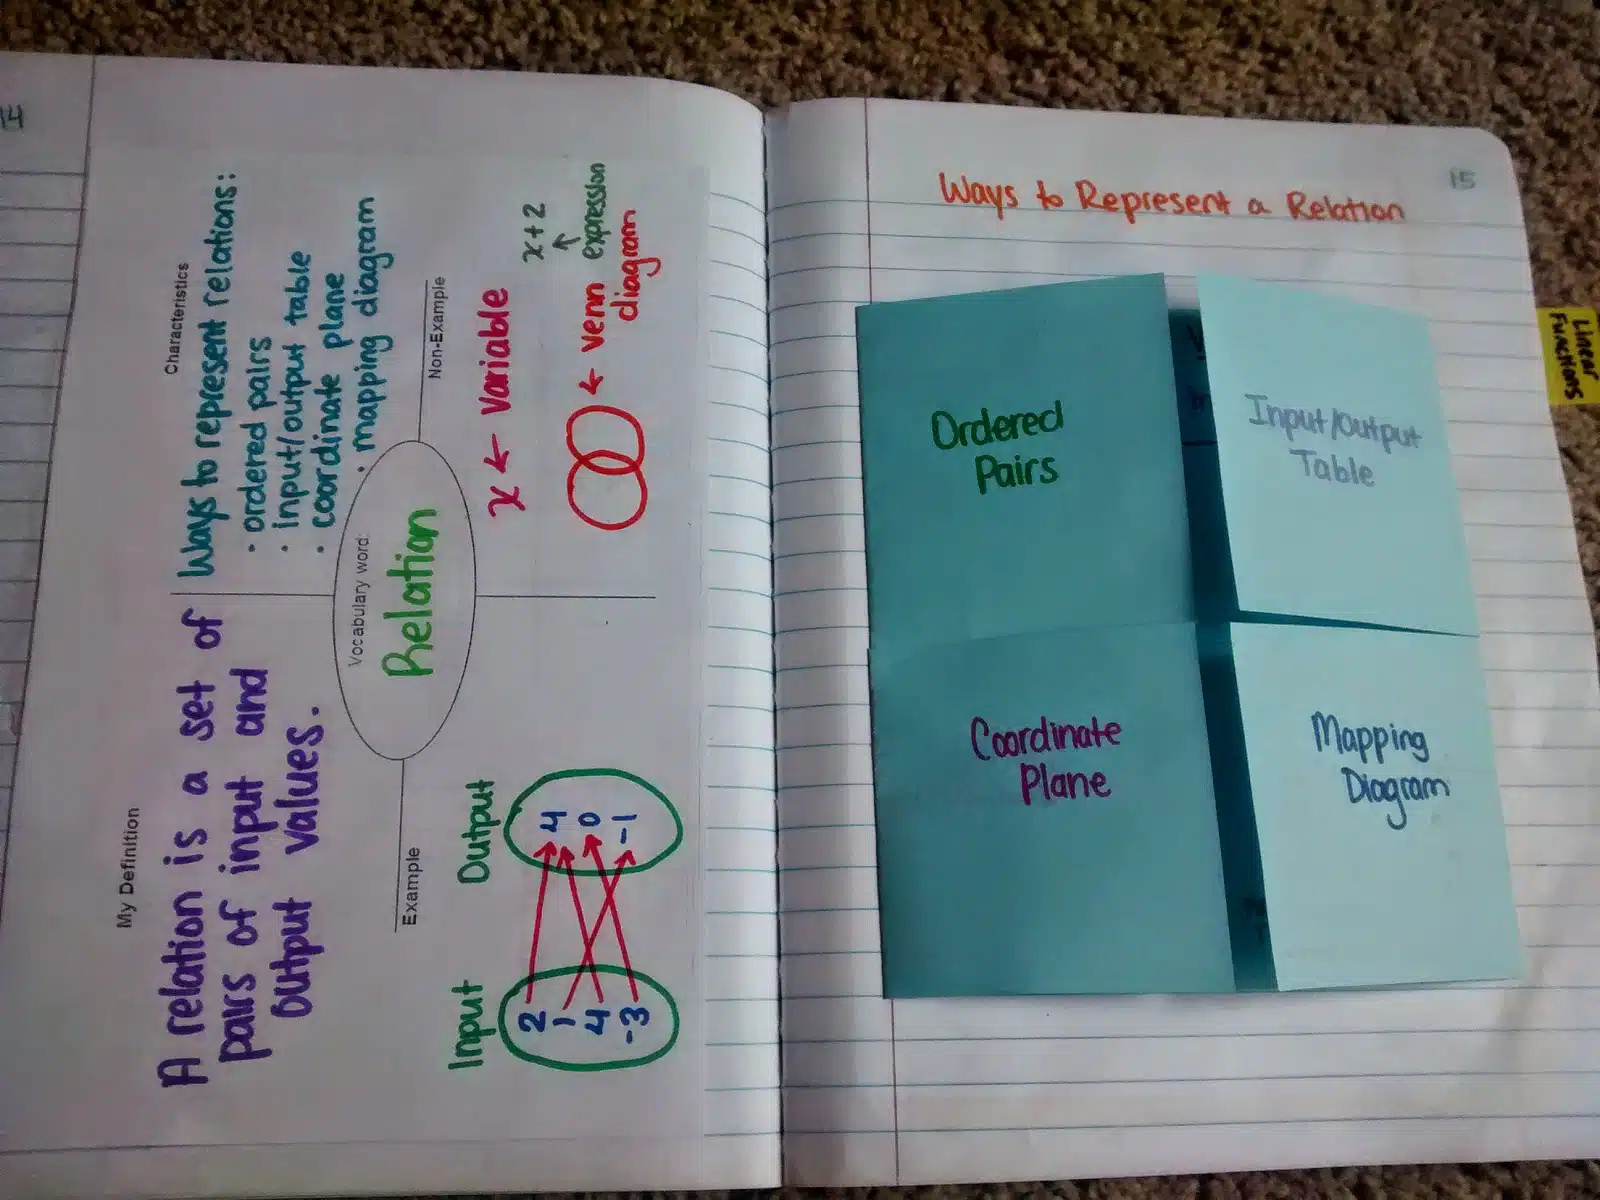 14
My Definition
A relation is a set of
pairs of input and
output values.
Characteristics
Ways to represent relations:
· ordered pairs
· input/output table
· coordinate plane
· mapping diagram
Vocabulary word:
Relation
Example
Input Output
2 4
1 0
4 -1
-3
Non-Example
x ← variable
x + 2
↑
expression
← venn
diagram
15
Ways to Represent a Relation
Ordered
Pairs
Input/Output
Table
Coordinate
Plane
Mapping
Diagram
Linear
Functions